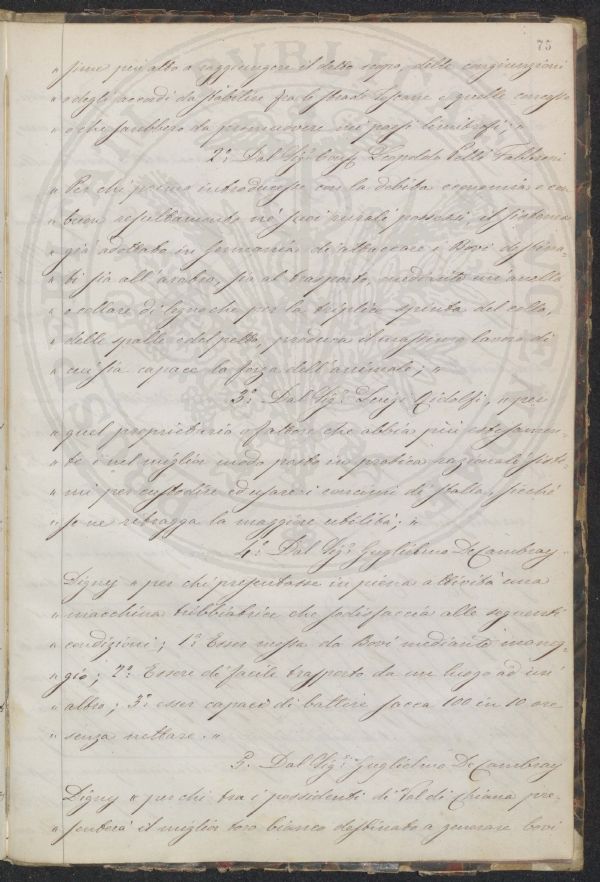 75
" sime più atto a raggiungere il detto scopo, delle congiunzioni
" e degli accordi da stabilire fra le strade toscane e quelle concesse
" o che sarebbero da promuovere nei paesi limitrofi; "
2.º Dal Sig.r Leopoldo Pelli Fabbroni
" Per chi primo introducesse con la debita economia e con
" buon resultamento ne' suoi rurali possessi, il sistema
" già adottato in Germania di attaccare i Bovi destina-
" ti sia all'aratro, sia al trasporto, mediante un'anello
" o collare di legno che per la triplice spinta del collo,
" delle spalle e del petto, produca il massimo lavoro di
" cui sia capace la forza dell'animale; "
3.º Dal Sig.r Luigi Ridolfi, " per
" quel proprietario o fattore che abbia più estesamen-
" te e nel miglior modo posto in pratica razionali siste-
" mi per custodire ed usare i concimi di stalla, sicché
" se ne ritragga la maggiore utilità; "
4.º Dal Sig.r Guglielmo De Cambray
Digny " per chi presentasse in piena attività una
" macchina trebbiatrice che sodisfaccia alle seguenti
" condizioni; 1.º Esser mossa da Bovi mediante maneg-
" gio; 2.º Essere di facile trasporto da un luogo ad un'
" altro; 3.º esser capace di battere sacca 100 in 10 ore
" senza nettare. "
5. Dal Sig.r Guglielmo De Cambray
Digny " per chi tra i possidenti di Val di Chiana pre-
" senterà il miglior toro bianco destinato a generare bovi